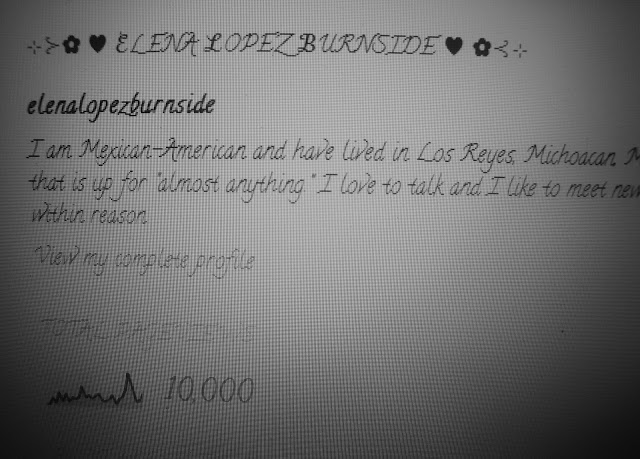 ⊹≻✿ ♥ ELENA LOPEZ BURNSIDE ♥ ✿≺⊹
elenalopezburnside
I am Mexican-American and have lived in Los Reyes, Michoacan, M
that is up for "almost anything." I love to talk and I like to meet new
within reason.
View my complete profile
TOTAL PAGEVIEWS
10,000